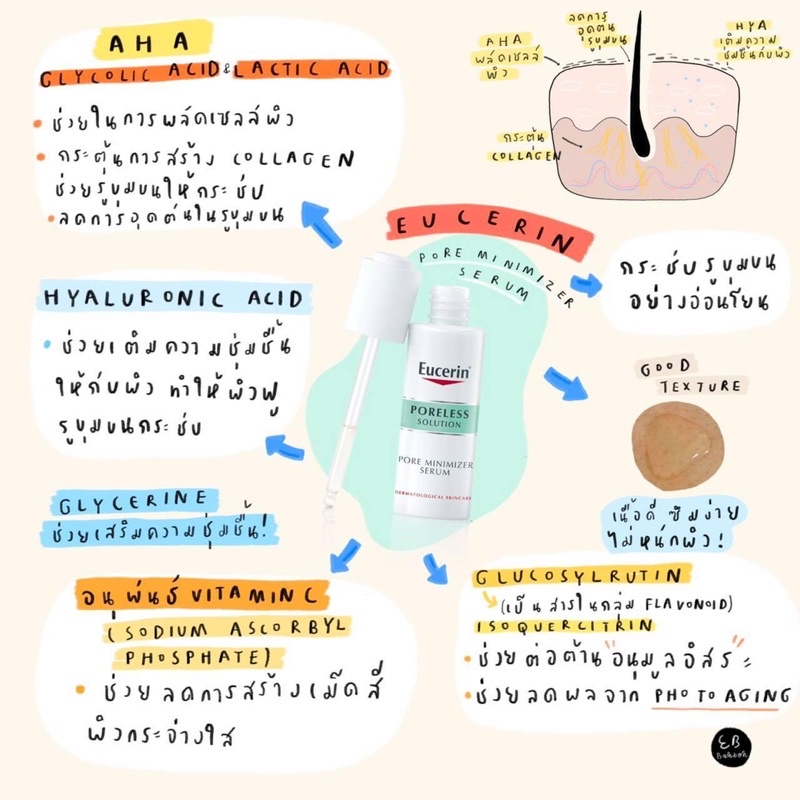 AHA
GLYCOLIC ACID & LACTIC ACID
• ช่วยในการผลัดเซลล์ผิว
• กระตุ้นการสร้าง COLLAGEN
ช่วยรูขุมขนให้กระชับ
• ลดการอุดตันในรูขุมขน
AHA
ผลัดเซลล์
ผิว
ลดการ
อุดตัน
รูขุมขน
HYA
เติมความ
ชุ่มชื้นกับผิว
กระตุ้น
COLLAGEN
EUCERIN
PORE MINIMIZER
SERUM
กระชับรูขุมขน
อย่างอ่อนโยน
HYALURONIC ACID
• ช่วยเติมความชุ่มชื้น
ให้กับผิว ทำให้ผิวฟู
รูขุมขนกระชับ
Eucerin
PORELESS
SOLUTION
PORE MINIMIZER
SERUM
DERMATOLOGICAL SKINCARE
GOOD
TEXTURE
เนื้อดี ซึมง่าย
ไม่หนักผิว!
GLYCERINE
ช่วยเสริมความชุ่มชื้น!
อนุพันธ์ VITAMIN C
(SODIUM ASCORBYL
PHOSPHATE)
• ช่วยลดการสร้างเม็ดสี
ผิวกระจ่างใส
GLUCOSYLRUTIN
(เป็นสารในกลุ่ม FLAVONOID)
ISOQUERCITRIN
• ช่วยต่อต้าน "อนุมูลอิสระ"
• ช่วยลดผลจาก PHOTOAGING
EB